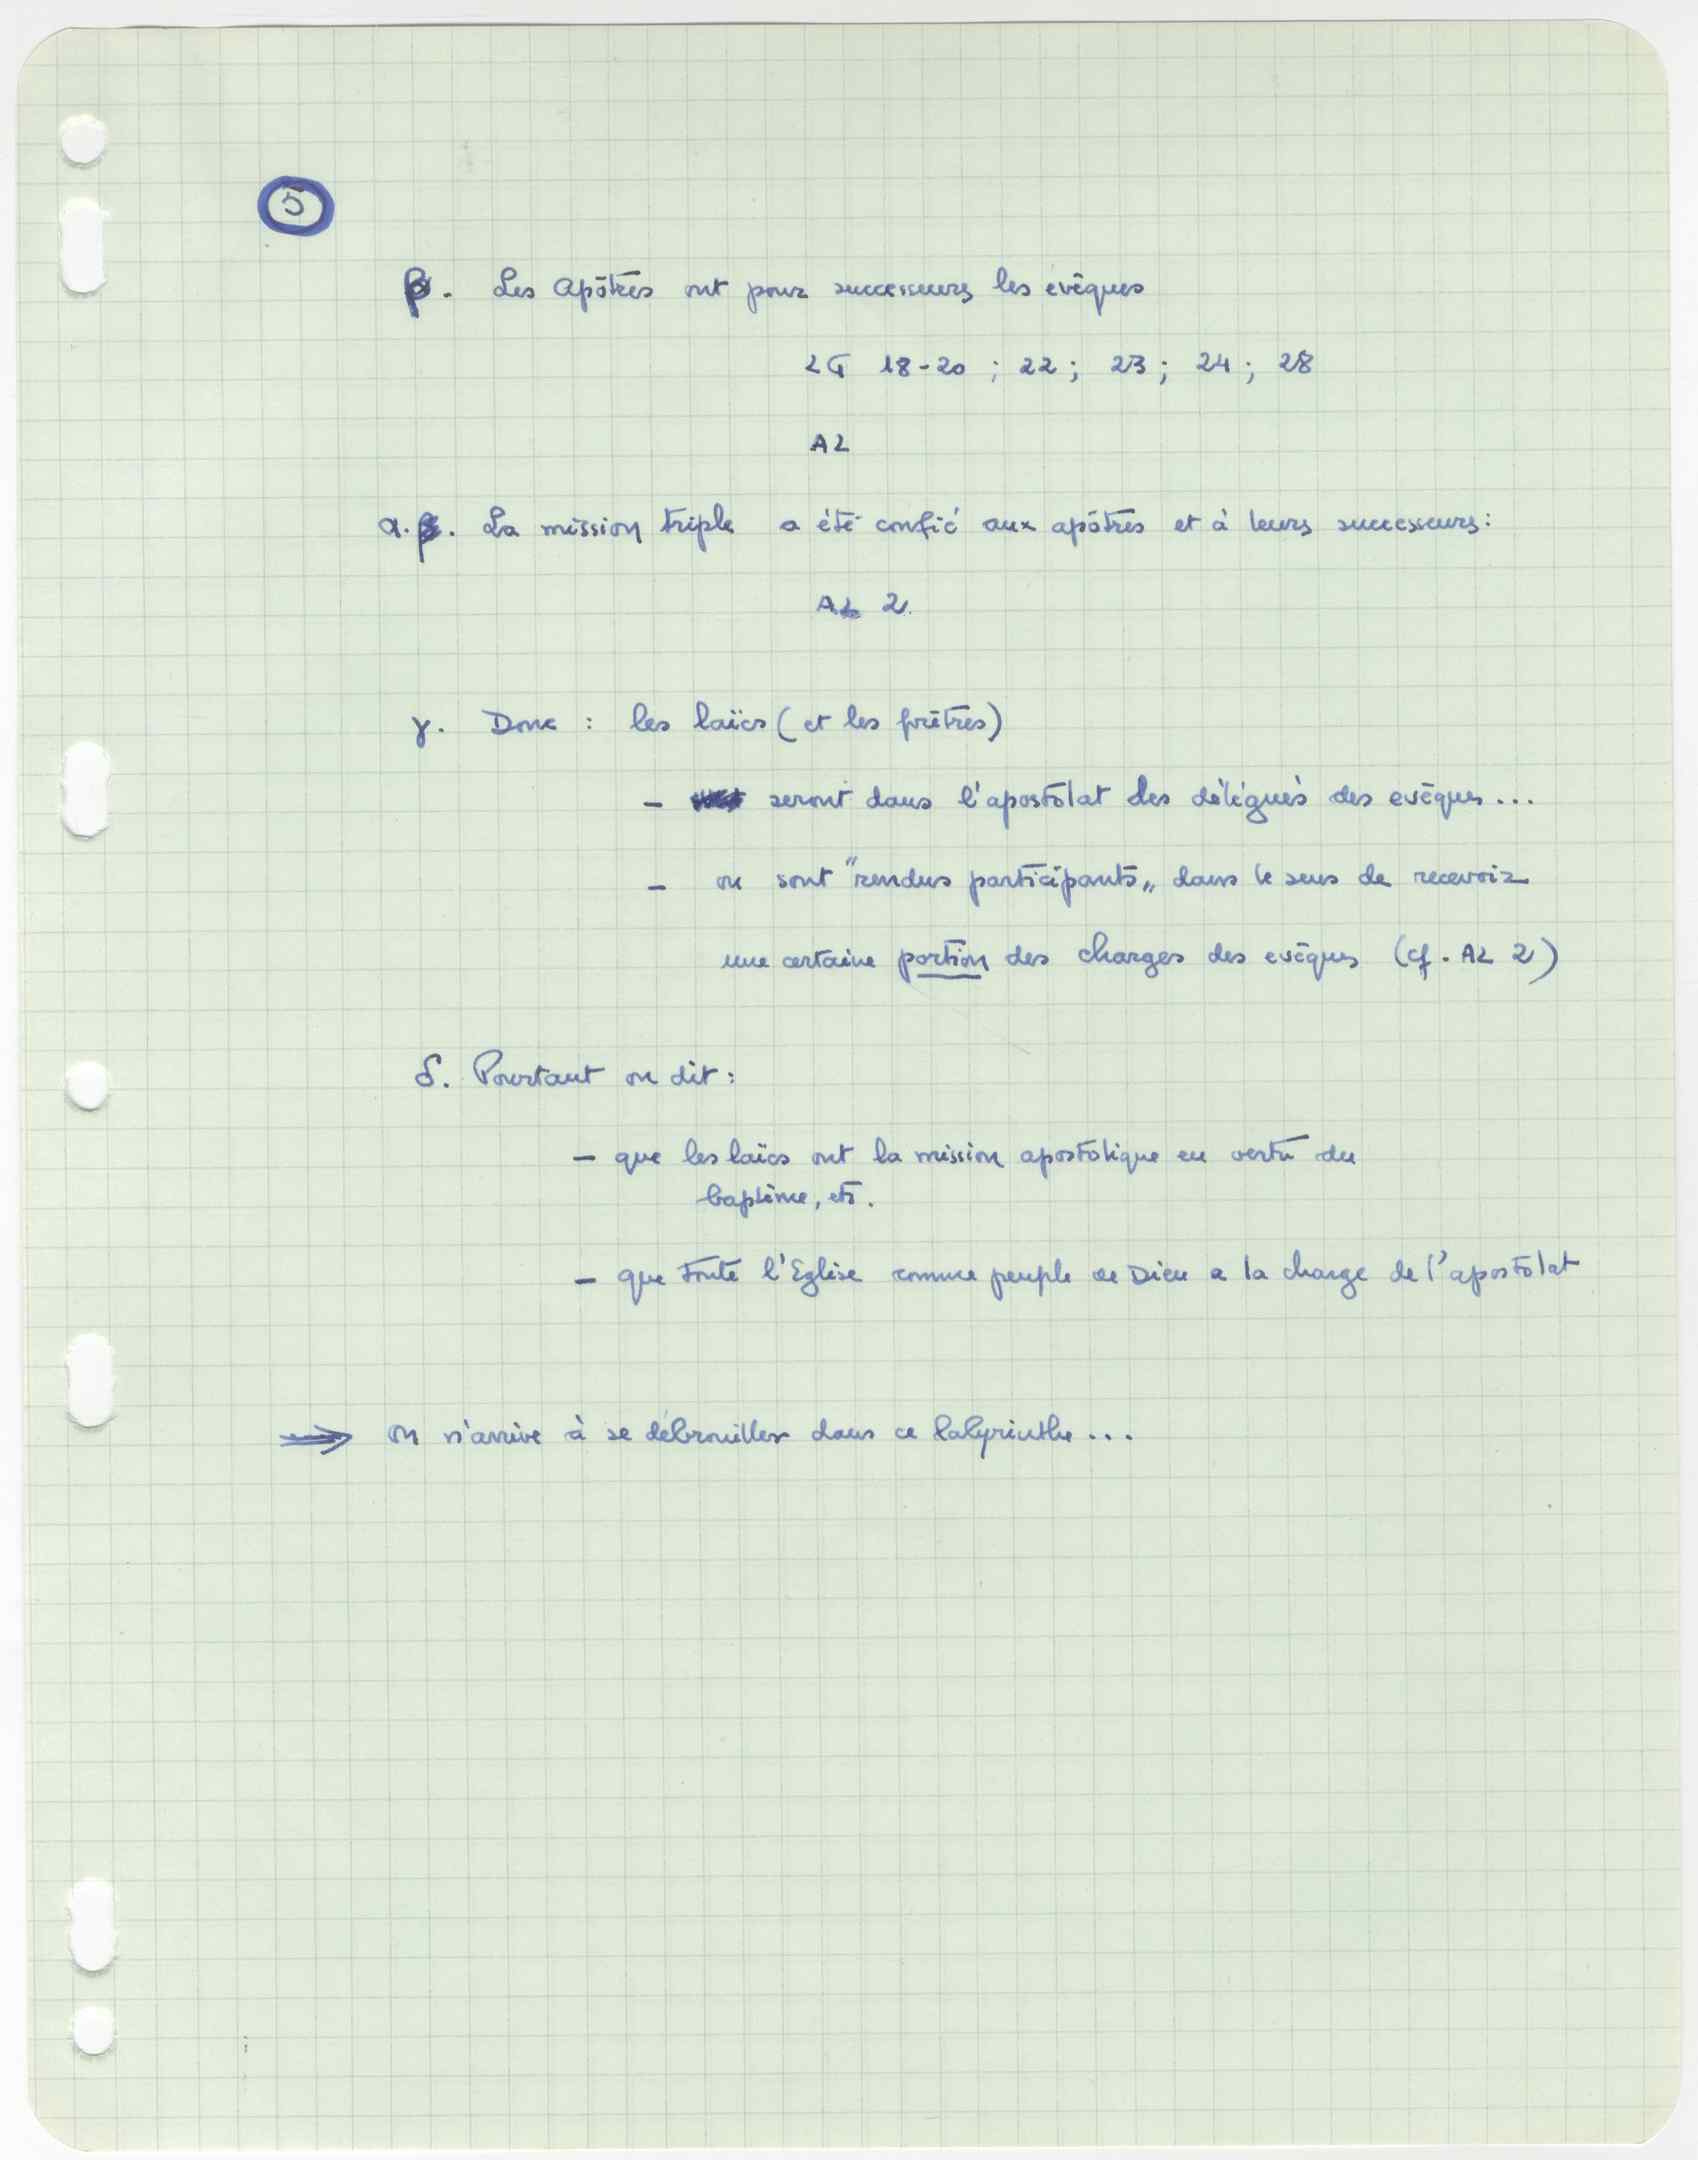 5
β. Les Apôtres ont pour successeurs les évêques
LG 18-20 ; 22 ; 23 ; 24 ; 28
AL
α.β. La mission triple a été confié aux apôtres et à leurs successeurs :
AL 2.
γ. Donc : les laïcs (et les prêtres)
- seront dans l'apostolat des délégués des evêques...
- ou sont "rendus participants„ dans le sens de recevoir
une certaine portion des charges des evêques (cf. AL 2)
δ. Pourtant on dit :
- que les laïcs ont la mission apostolique en vertu du
baptême, etc.
- que toute l'Eglise comme peuple de Dieu a la charge de l'apostolat
⇒ on n'arrive à se débrouiller dans ce labyrinthe...